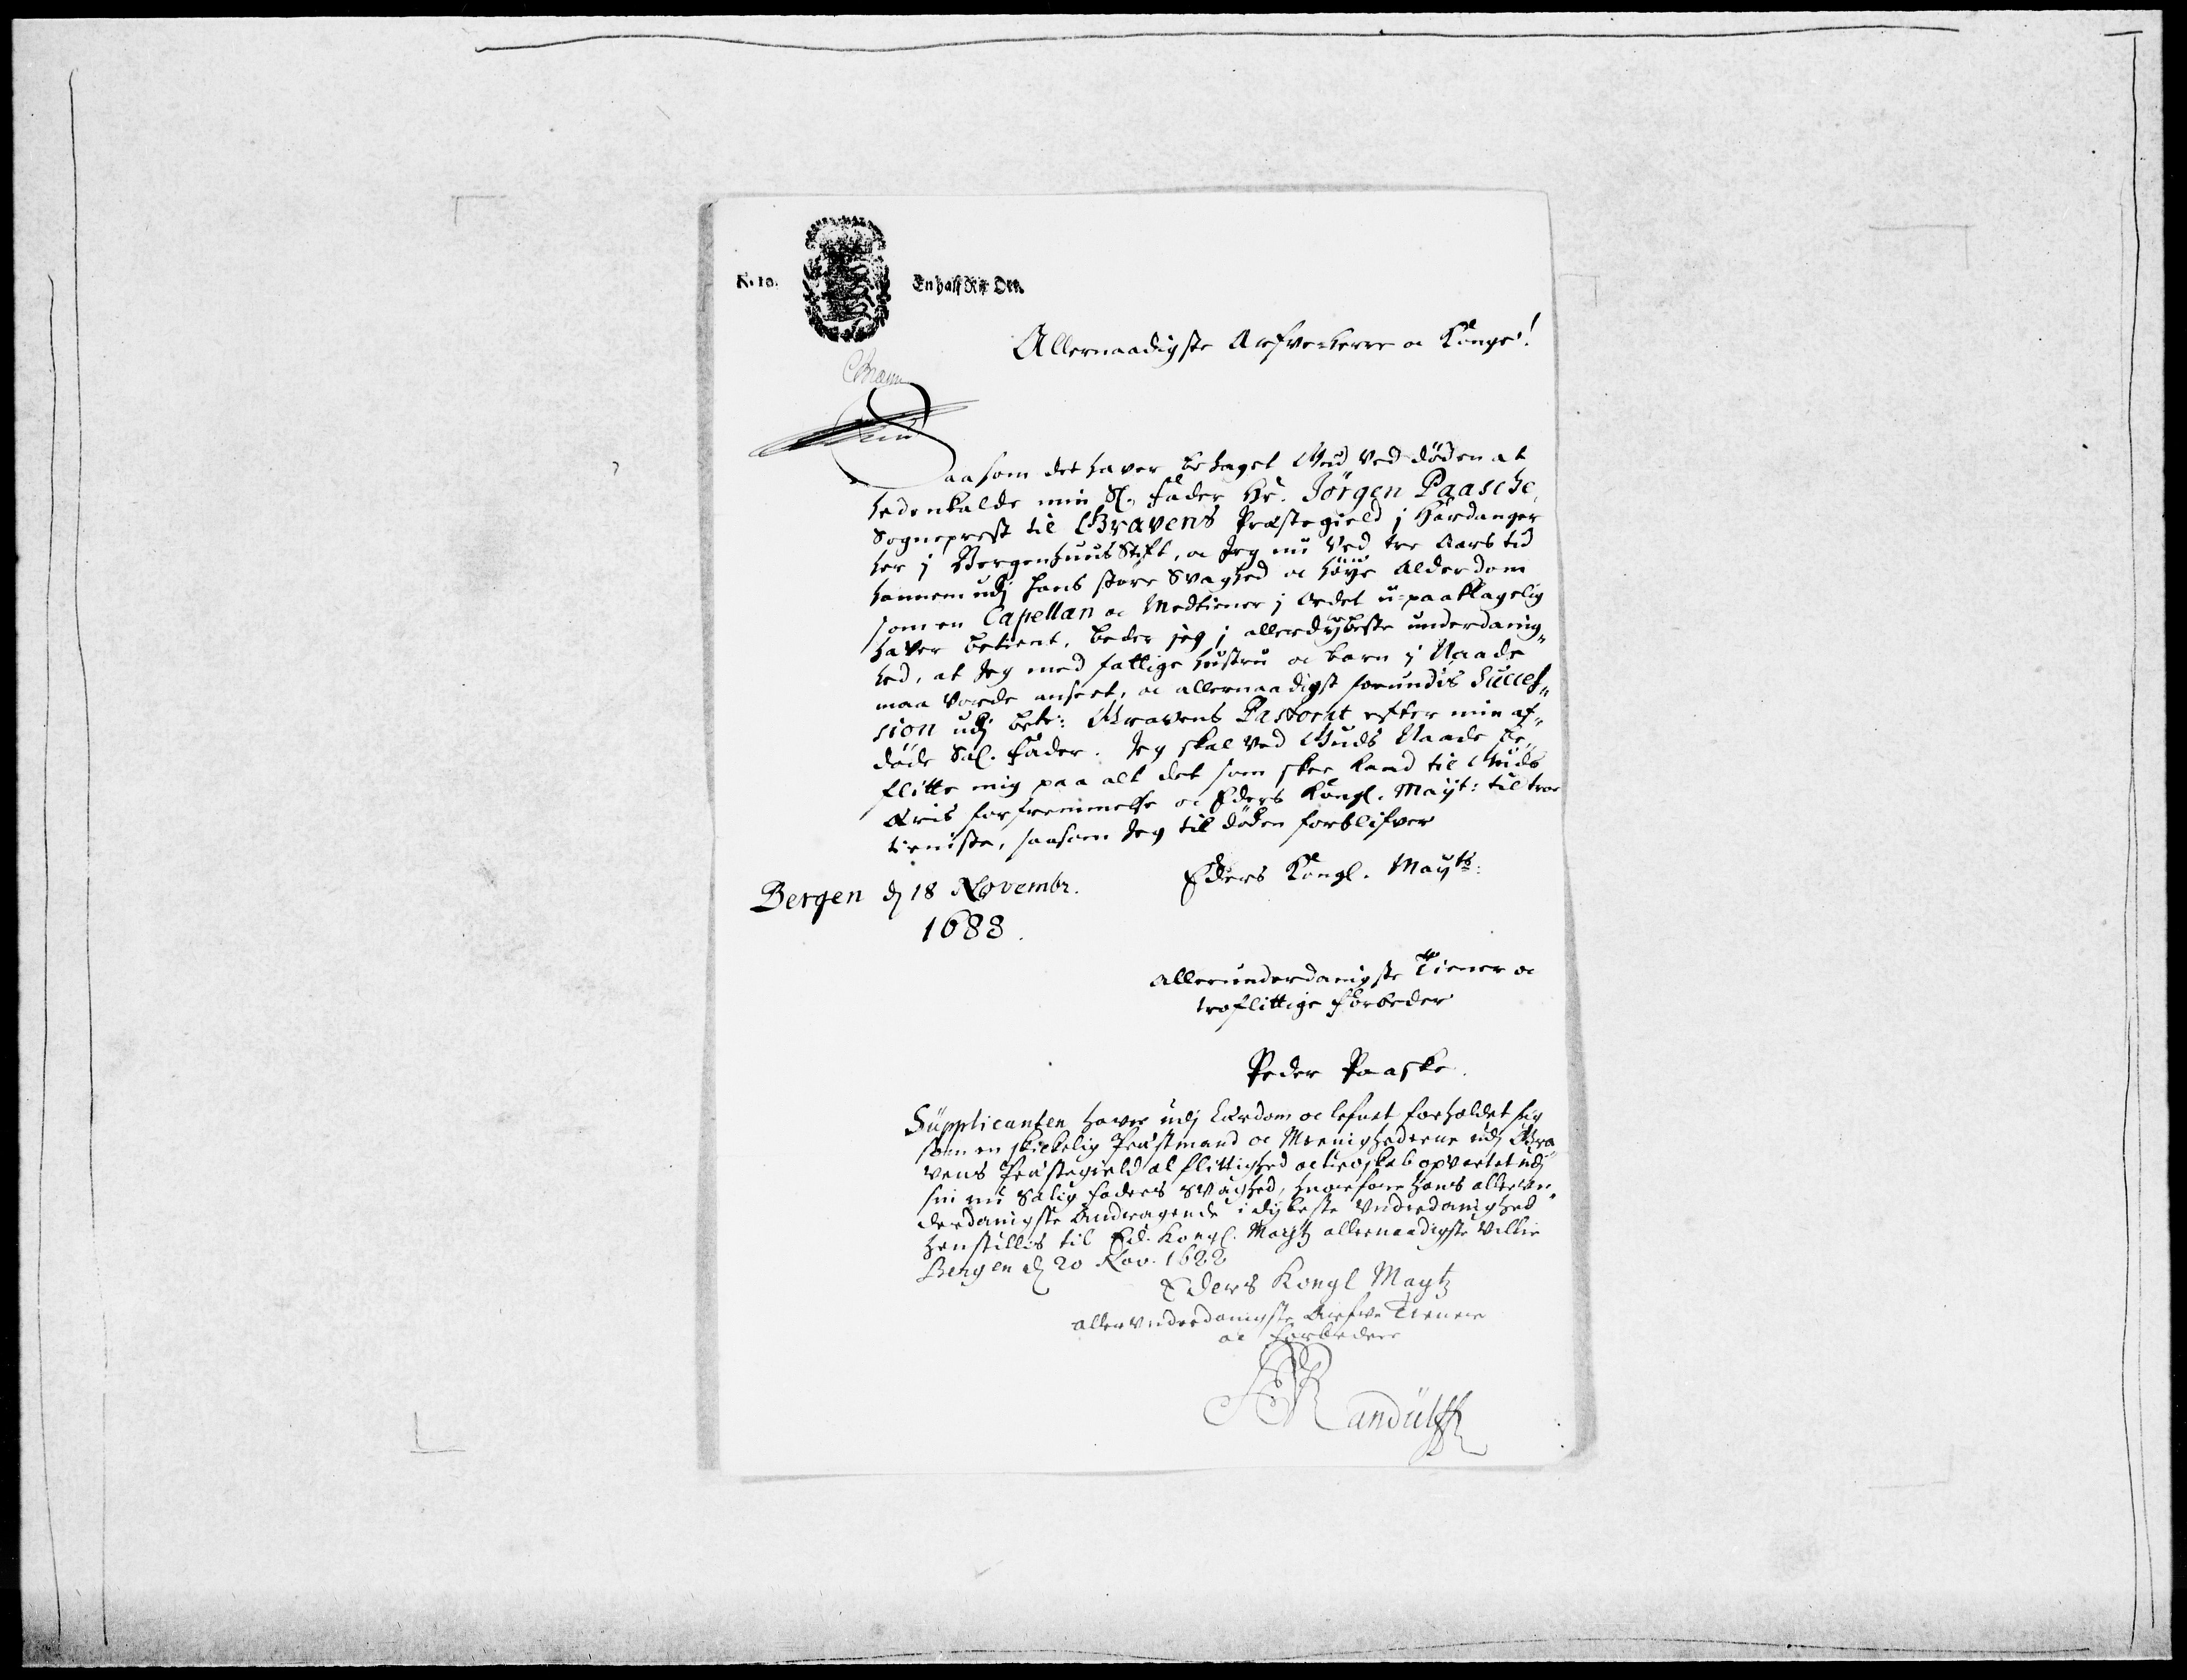 N. 10. En half Rix Ort.
Allernaadigste Arfve-Herre oc Konge!
Saasom det haver behaget Gud ved døden at
hedenkalde min Sl. Fader Hr. Jörgen Paasche,
Sogneprest til Gravens Præstegield j Hardanger
her j Bergenhuus Stift, oc Jeg nu ved tre Aars tid
hannem udj hans store Svaghed oc høye Alderdom
som en Capellan oc Medtiener j Ordet u-paaklagelig
haver betient, beder jeg j allerdybeste underdanig„
hed, at Jeg med fattige hustru oc børn j Naade
maa vorde anseet, oc allernaadigst forundis Succes„
sion udj bete: Gravens Pastorat efter min af„
døde Sal. Fader. Jeg skal ved Guds Naade be„
flitte mig paa alt det som skee kand til Guds
Æris forfremmelse oc Eders Kongl. Mayt: til troe
tieniste, saasom Jeg til døden forblifver
Eders Kongl. Mayts:
Bergen dj 18 Novembr.
1688.
allerunderdanigste Tiener oc
troflittige Forbeder
Peder Paaske.
Supplicanten haver udj Lærdom oc lefnet forholdet sig
som en skickelig Præstmand oc Meenighederne udj Gra„
vens Præstegield al flittighed oc troskab opvartet udj
sin nu Salig faders Svaghed, hvorfore hans allerun„
derdanigste Andragende i dybeste Underdanighed
henstillis til Ed. Kongl. Maytz allernaadigste Villie
Bergen dj 20 Nov. 1688
Eders Kongl Maytz
allerunderdanigste Arfve Tienere
oc forbedere
Randulff